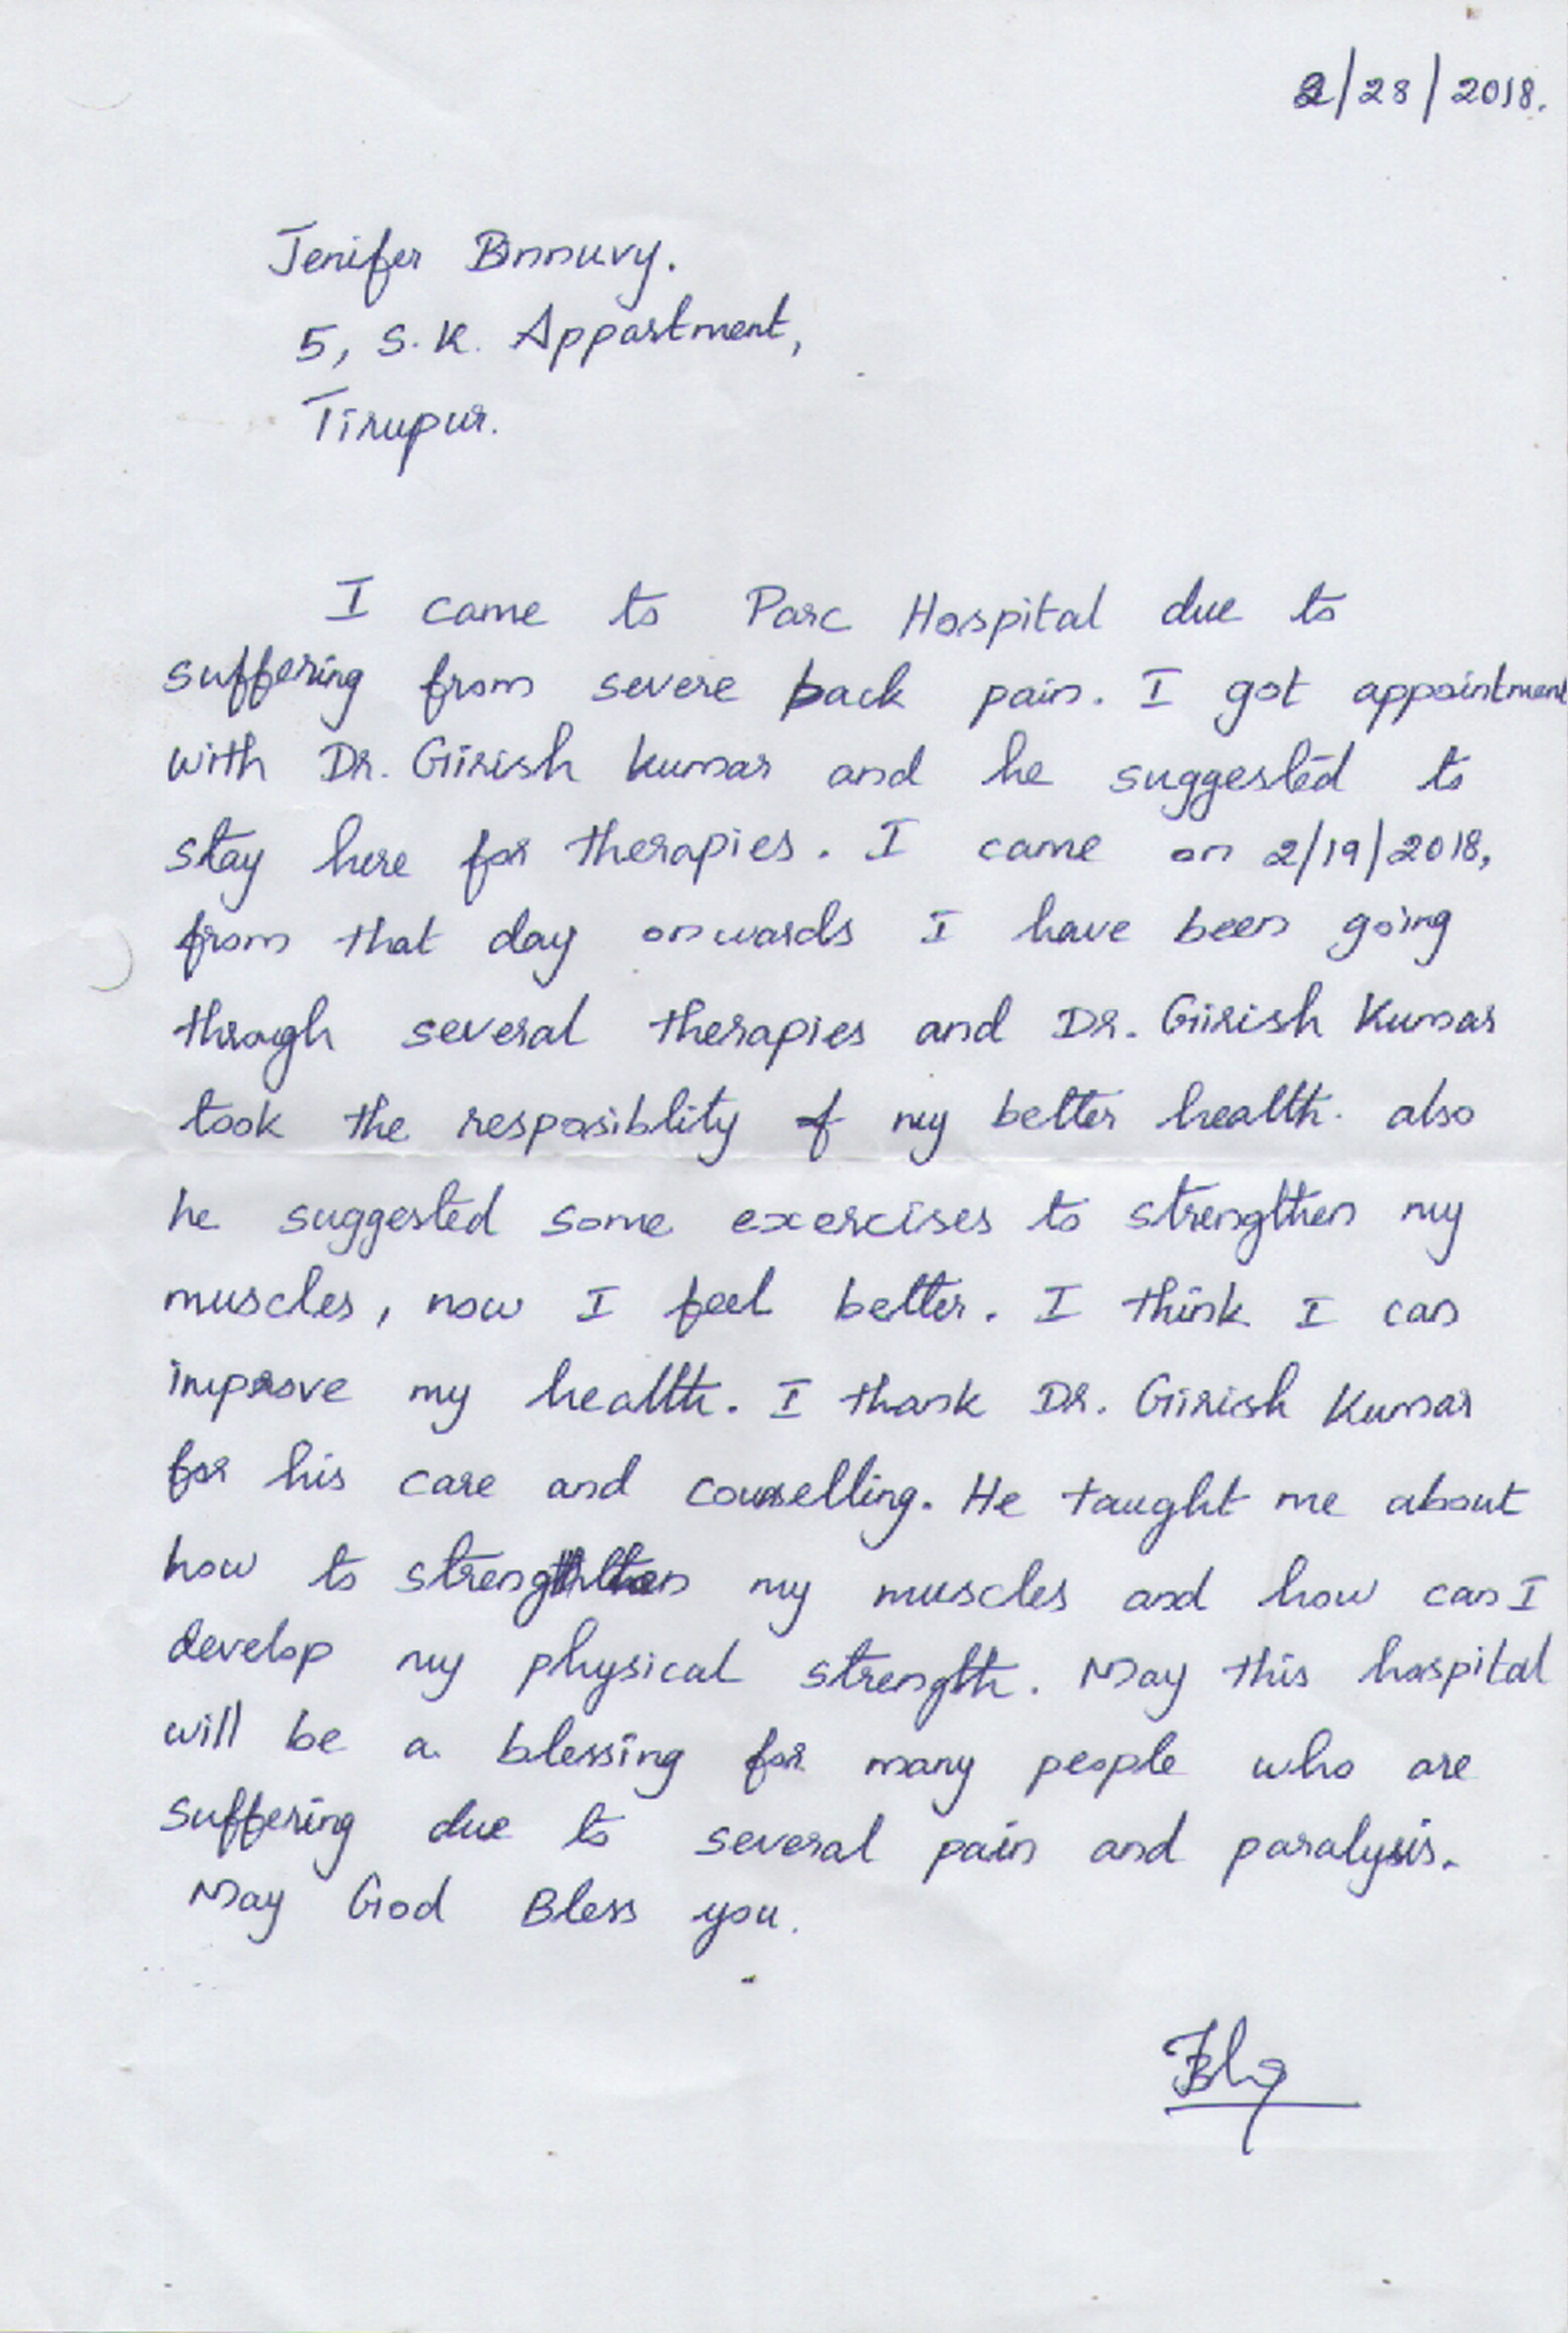 2/28/2018.
Jenifer Bnnuvy.
5, S.K. Appartment,
Tirupur.
I came to Parc Hospital due to
suffering from severe back pain. I got appointment
with Dr. Girish kumar and he suggested to
stay here for therapies. I came on 2/19/2018,
from that day onwards I have been going
throgh several therapies and Dr. Girish Kumar
took the resposiblity of my better health. also
he suggested some exercises to strengthen my
muscles, now I feel better. I think I can
improve my health. I thank Dr. Girish Kumar
for his care and counselling. He taught me about
how to strengthen my muscles and how can I
develop my physical strength. May this hospital
will be a blessing for many people who are
suffering due to several pain and paralysis.
May God Bless you.